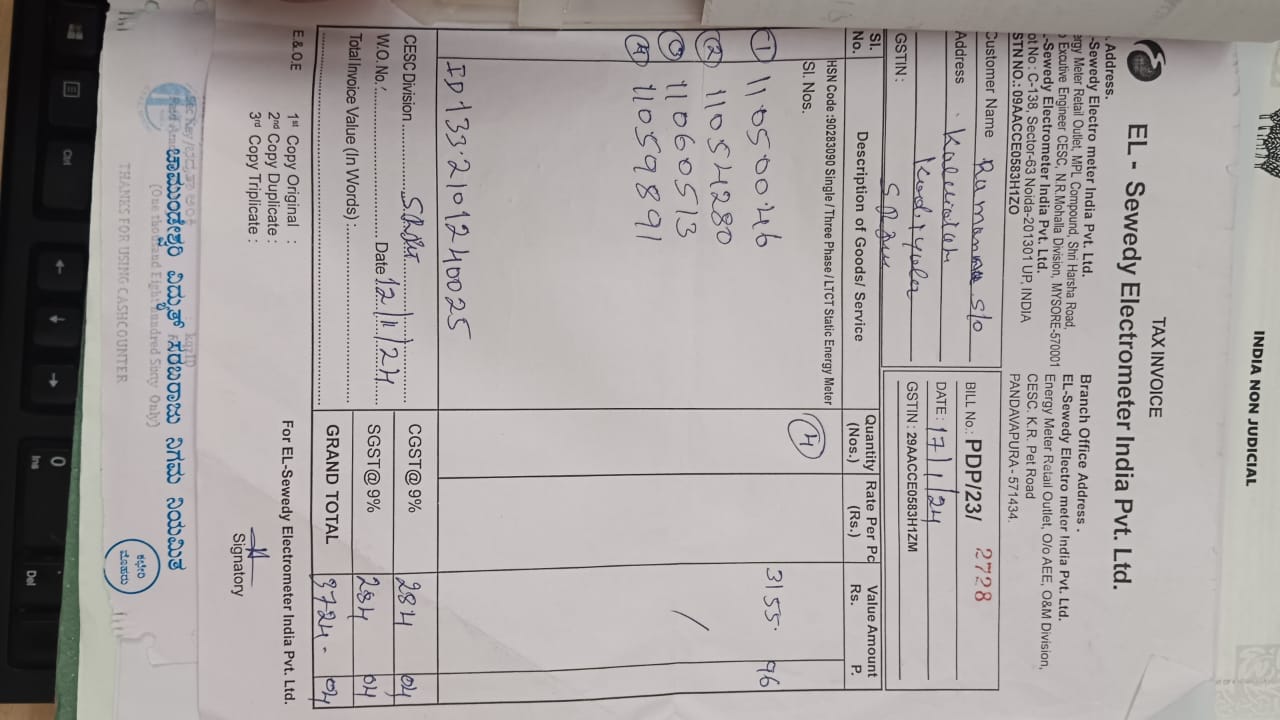 INDIA NON JUDICIAL
TAX INVOICE
EL - Sewedy Electrometer India Pvt. Ltd.
Address.
-Sewedy Electro meter India Pvt. Ltd.
ergy Meter Retail Outlet, MPL Compound, Shri Harsha Road,
Excutive Engineer CESC, N.R.Mohalla Division, MYSORE-570001
-Sewedy Electrometer India Pvt. Ltd.
ot No : C-138, Sector-63 Noida-201301 UP, INDIA
STN NO.: 09AACCE0583H1ZO
Branch Office Address .
EL-Sewedy Electro meter India Pvt. Ltd.
Energy Meter Retail Outlet, O/o AEE, O&M Division,
CESC. K.R. Pet Road
PANDAVAPURA - 571434.
Customer Name Ramanna s/o
Address . Kalaiah
Kodiyala
GSTIN :
BILL No.: PDP/23/ 2728
DATE : 17/1/24
GSTIN : 29AACCE0583H1ZM
Sl. No. Description of Goods/ Service Quantity (Nos.) Rate Per Pc (Rs.) Value Amount Rs. P.
HSN Code :90283090 Single / Three Phase / LTCT Static Energy Meter
Sl. Nos. 4
1 11050046 3155. 96
2 11054280
3 11060513
4 11059891
ID 1332101240025
CESC Division
W.O. No.: Date 12/11/24
Total Invoice Value (In Words) :
CGST@9% 284 04
SGST@9% 284 04
GRAND TOTAL 3724 - 04
E.& O.E
1st Copy Original :
2nd Copy Duplicate :
3rd Copy Triplicate :
For EL-Sewedy Electrometer India Pvt. Ltd.
Signatory
ಚಾಮುಂಡೇಶ್ವರಿ ವಿದ್ಯುತ್ ಸರಬರಾಜು ನಿಗಮ ನಿಯಮಿತ
(One thousand Eight hundred Sixty Only)
THANKS FOR USING CASHCOUNTER
ಕಛೇರಿ
ಮೊಹರು
Ctrl
0
Ins
Del